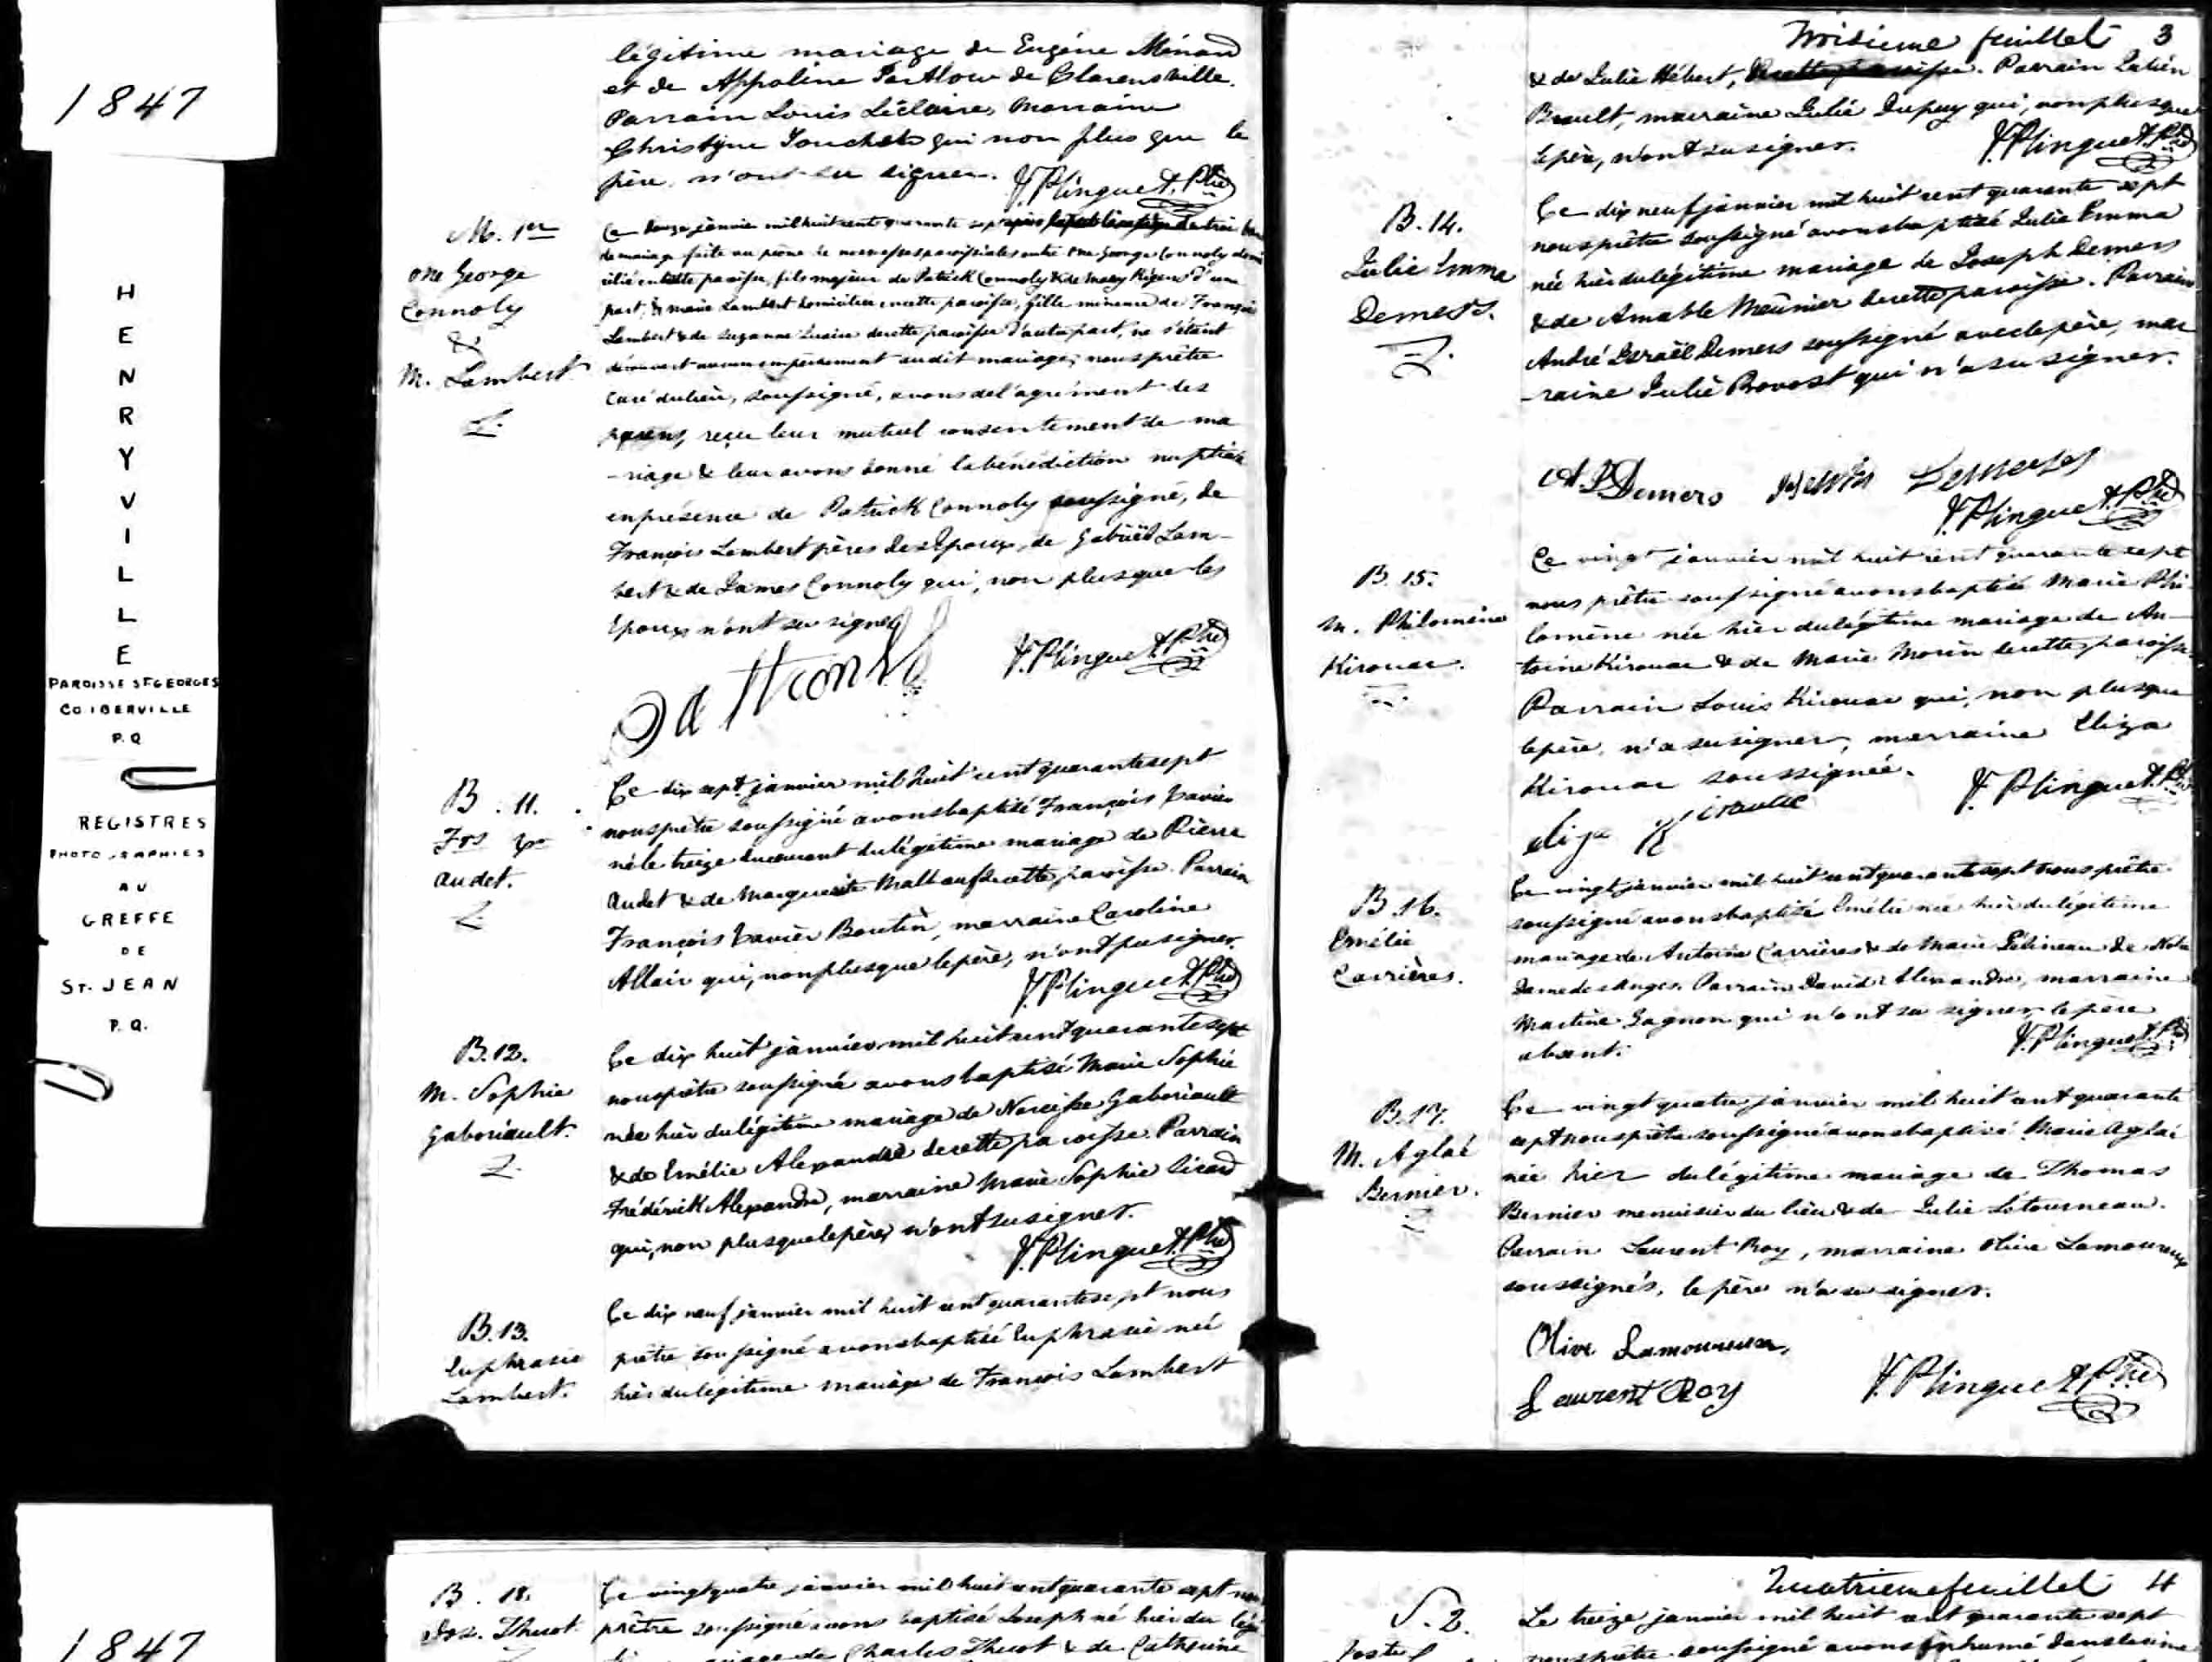 1847
HENRYVILLE
PAROISSE ST GEORGES
CO IBERVILLE
P.Q
REGISTRES
PHOTOGRAPHIES
AU
GREFFE
DE
ST. JEAN
P.Q.
légitime mariage de Eugène Ménard
et de Appoline Parblow de Clarensville.
Parrain Louis Léclaire, Marraine
Christine Touchet qui non plus que le
père n'ont su signer. F. Plinguet, Ptre
M. 1er
One George
Connoly
&
M. Lambert
Ce douze janvier mil huit cent quarante sept après la publication de trois bans
de mariage faite au prône de nos messes paroissiales entre One George Connoly domi
cilié en cette paroisse, fils majeur de Patrick Connoly & de Mary d'une
part, & Marie Lambert domiciliée en cette paroisse, fille mineure de François
Lambert & de Suzanne de cette paroisse d'autre part, ne s'étant
découvert aucun empêchement au dit mariage, nous prêtre
curé du lieu, soussigné, avons de l'agrément des
parens, reçu leur mutuel consentement de ma
-riage & leur avons donné la bénédiction nuptiale
en présence de Patrick Connoly soussigné, de
François Lambert pères des Epoux, de Gabriel Lam-
bert & de James Connoly qui, non plus que les
Epoux n'ont su signer
F. Plinguet, Ptre
B. 11.
Frs Xer
Audet.
Ce dix sept janvier mil huit cent quarante sept
nous prêtre soussigné avons baptisé François Xavier
né le treize du courant du légitime mariage de Pierre
Audet & de Marguerite de cette paroisse. Parrain
François Xavier Boutin, marraine Caroline
Allair qui, non plus que le père, n'ont pu signer.
F. Plinguet, Ptre
B. 12.
M. Sophie
Gaboriault.
Ce dix huit janvier mil huit cent quarante sept
nous prêtre soussigné avons baptisé Marie Sophie
née hier du légitime mariage de Narcisse Gaboriault
& de Emélie Alexandre de cette paroisse. Parrain
Frédérick Alexandre, marraine Marie Sophie Sicard
qui, non plus que le père, n'ont su signer.
F. Plinguet, Ptre
B. 13.
Euphrasie
Lambert.
Ce dix neuf janvier mil huit cent quarante sept nous
prêtre soussigné avons baptisé Euphrasie née
hier du légitime mariage de François Lambert
Troisieme feuillet 3
& de Julie Hébert, de cette paroisse. Parrain Julien
Brault, marraine Julie Dupuy qui, non plus que
le père, n'ont su signer. F. Plinguet, Ptre
B. 14.
Julie Emma
Demers.
Ce dix neuf janvier mil huit cent quarante sept
nous prêtre soussigné avons baptisé Julie Emma
née hier du légitime mariage de Joseph Demers
& de Amable Meunier de cette paroisse. Parrain
André Israël Demers soussigné avec le père, mar
-raine Julie Provost qui n'a su signer.
A. I. Demers Demers
F. Plinguet, Ptre
B. 15.
M. Philomène
Kirouac.
Ce vingt janvier mil huit cent quarante sept
nous prêtre soussigné avons baptisé Marie Phi-
lomène née hier du légitime mariage de An-
toine Kirouac & de Marie Morin de cette paroisse.
Parrain Louis Kirouac qui, non plus que
le père, n'a su signer, marraine Eliza
Kirouac soussignée. F. Plinguet, Ptre
eliza
B. 16.
Emélie
Carrières.
Ce vingt janvier mil huit cent quarante sept nous prêtre
soussigné avons baptisé Emélie née hier du légitime
mariage de Antoine Carrières & de Marie de Notre
Dame des Anges. Parrain David Alexandre, marraine
Martine Gagnon qui n'ont su signer, le père
absent. F. Plinguet, Ptre
B. 17.
M. Aglaé
Bernier.
Ce vingt quatre janvier mil huit cent quarante
sept nous prêtre soussigné avons baptisé Marie Aglaé
née hier du légitime mariage de Thomas
Bernier menuisier du lieu & de Julie Létourneau.
Parrain Laurent Roy, marraine Olive Lamoureux
soussignés, le père n'a su signer.
Olive Lamoureux,
Laurent Roy F. Plinguet, Ptre
1847
B. 18.
Jos. Thuot
Ce vingt quatre janvier mil huit cent quarante sept nous
prêtre soussigné avons baptisé Joseph né hier du légi
mariage de Charles Thuot & de Catherine
Quatrieme feuillet 4
S. 2.
Le treize janvier mil huit cent quarante sept
nous prêtre soussigné avons inhumé dans le cime